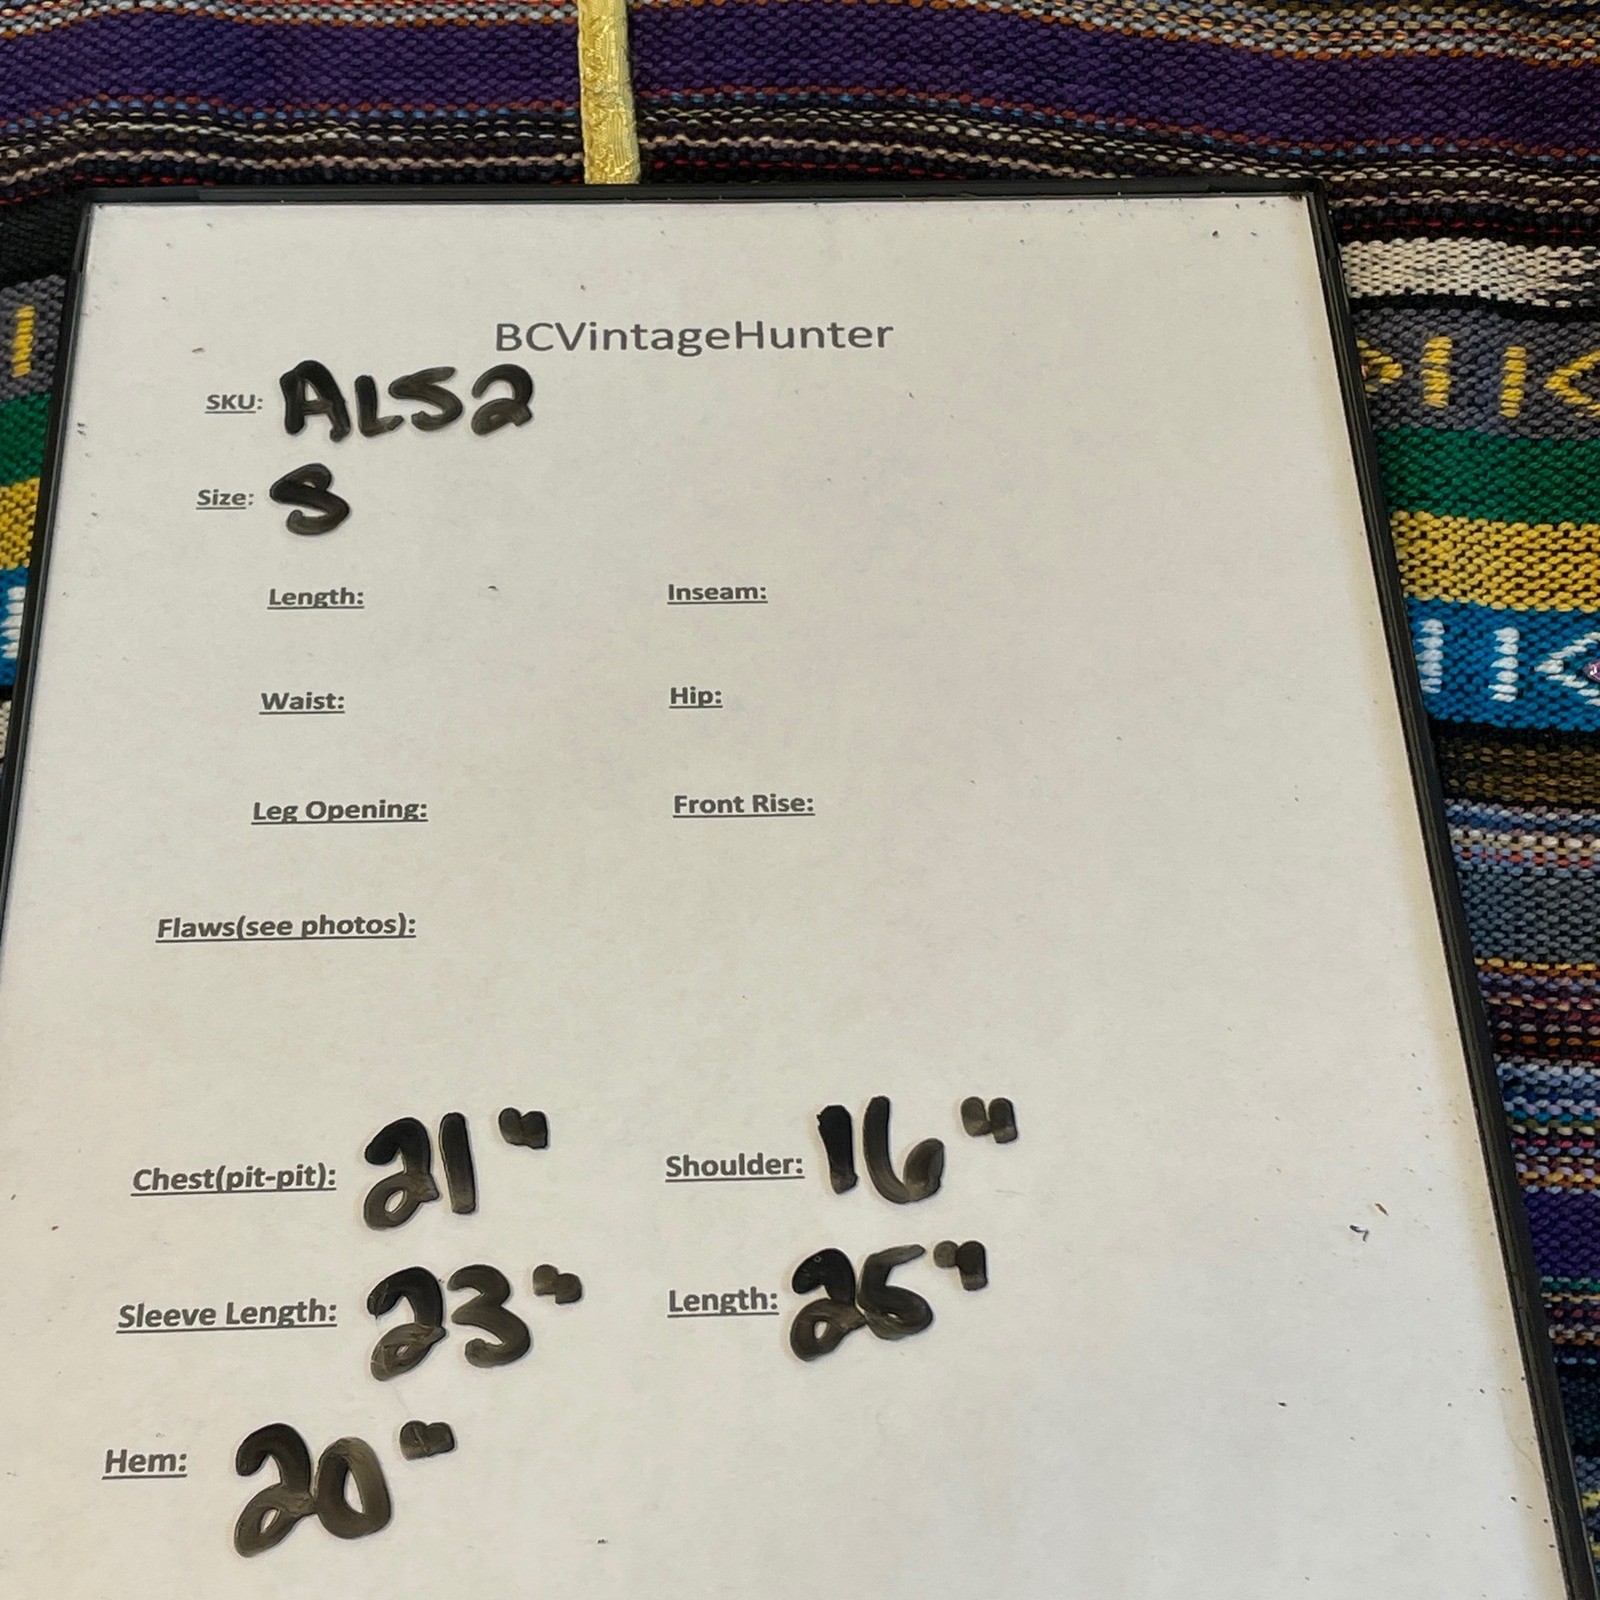 BCVintageHunter
SKU: ALS2
Size: S
Length: Inseam:
Waist: Hip:
Leg Opening: Front Rise:
Flaws(see photos):
Chest(pit-pit): 21" Shoulder: 16"
Sleeve Length: 23" Length: 25"
Hem: 20"